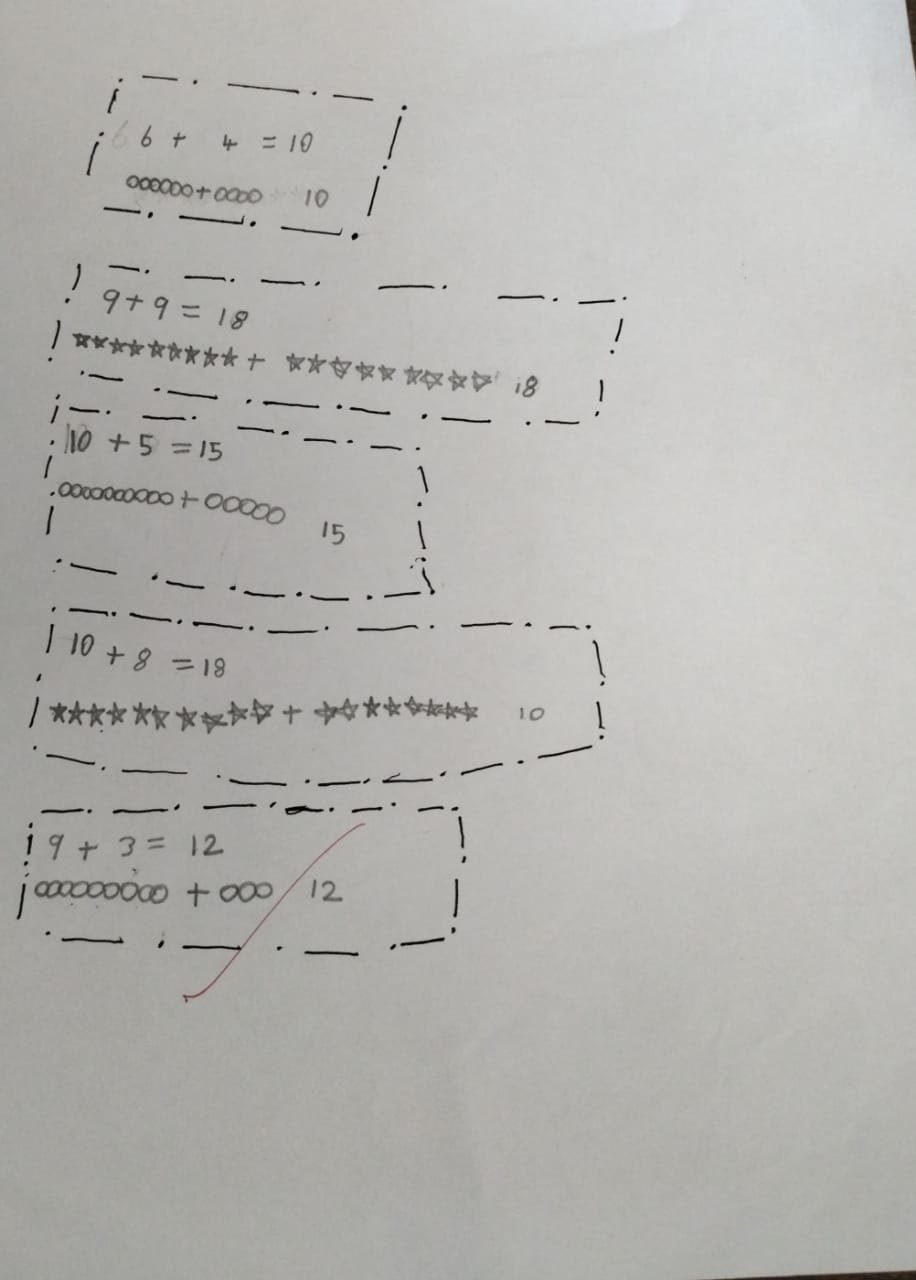 6 + 4 = 10
oooooo+oooo 10
9+9 = 18
★★★★★★★★★+ ★★★★★★★★★ 18
10 + 5 = 15
oooooooooo+ooooo 15
10 + 8 = 18
★★★★★★★★★★ + ★★★★★★★★ 10
9 + 3 = 12
ooooooooo + ooo 12